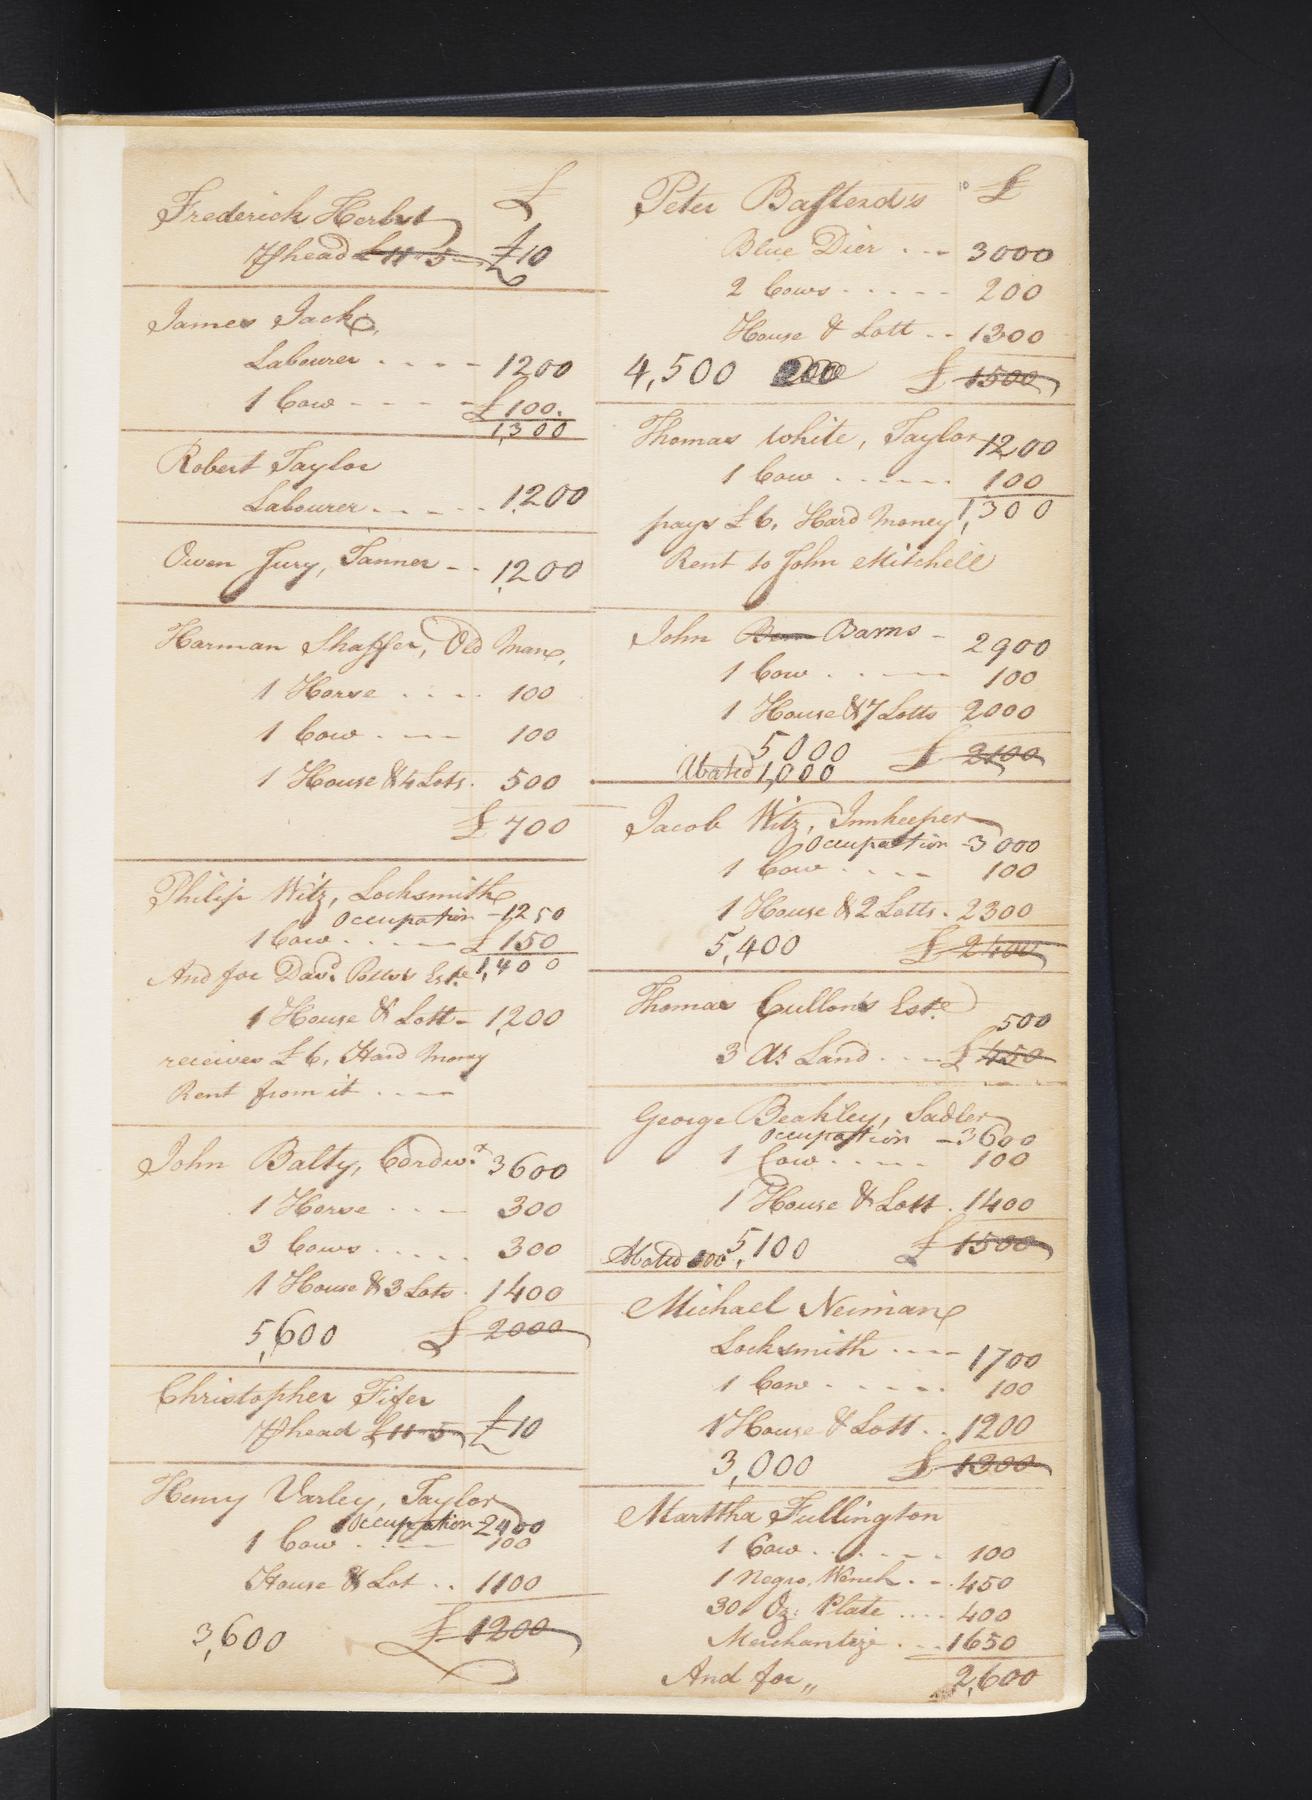 £
Frederick Herbst
℔head £11 5 £10
James Jack,
Labourer . . . . 1200
1 Cow - - - - £ 100.
1,300
Robert Taylor
Labourer . . . . . 1,200
Owen Jury, Tanner - - 1,200
Harman Shaffer, Old Man,
1 Horse . . . . 100
1 Cow . - - - 100
1 House & 4 Lots . 500
£ 700
Philip Witz, Locksmith
Occupation - 1250
1 Cow . . . . - £ 150
And for Davd. Este. 1,400
1 House & Lott - 1,200
receives £6, Hard Money
Rent from it . . - -
John Balty, Cordwr. 3600
1 Horse . . . - 300
3 Cows . . . . . 300
1 House & 3 Lots . 1400
5,600 £ 2000
Christopher Fifer
℔head £11 5 £10
Henry Varley, Taylor
Occupation - 2400
1 Cow . . . - - 100
House & Lot . . 1100
3,600 £ 1200
Peter Basterds £
Blue Dier . . - 3000
2 Cows . . . . . 200
House & Lott . . 1300
4,500 200 £ 1500
Thomas White, Taylor 1200
1 Cow . . . . . . 100
pays £6, Hard Money 1,300
Rent to John Mitchell
John Barns - 2900
1 Cow . . - - - 100
1 House & 7 Lotts 2000
5000 £ 2100
Abated 1,000
Jacob Witz, Innkeeper
Occupation - 3000
1 Cow . . . . - 100
1 House & 2 Lotts . 2300
5,400 £ 2400
Thomas Cullon's Este.
500
3 As. Land . . . - £ 450
George Beakley, Sadler
Occupation - 3600
1 Cow . . . . - 100
1 House & Lott . 1400
Abated 5,100 £ 1500
Michael Neiman
Locksmith . . . - - 1700
1 Cow - . . . . . 100
1 House & Lott . . 1200
3,000 £ 1300
Marttha Fullington
1 Cow . . . . - - . 100
1 Negro, Wench . - . 450
30 Oz: Plate . . . . 400
Merchantize . . . 1650
And for,, 2,600